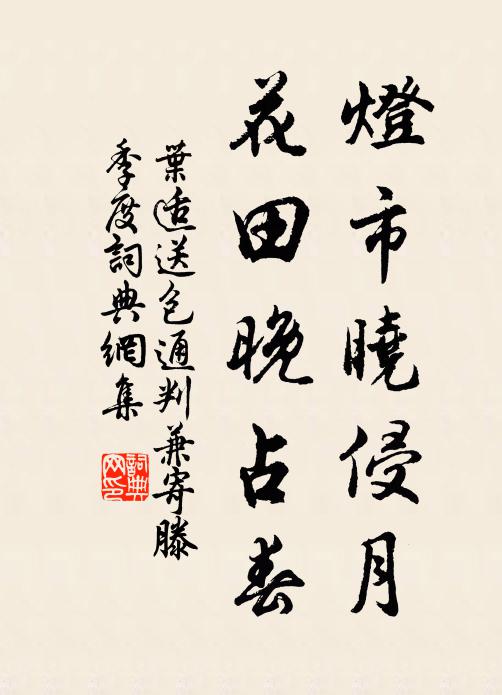 燈市曉侵月
花田晚占春
葉适送包通判兼寄滕
季度詞典網集
詞典
网印